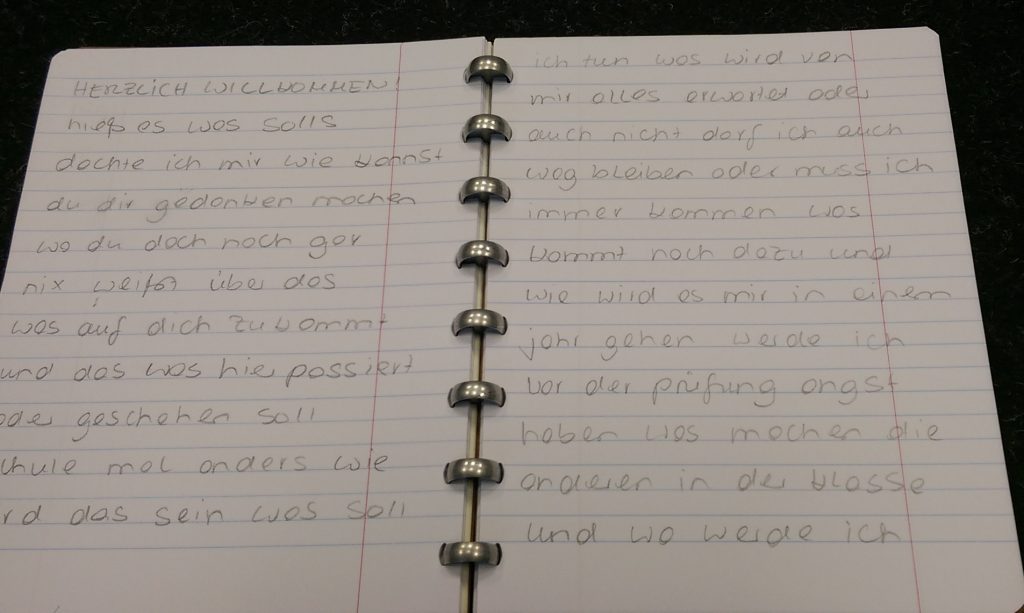 HERZLICH WILLKOMMEN!
hieß es was solls
dachte ich mir wie kannst
du dir gedanken machen
wo du doch noch gar
nix weißt über das
was auf dich zukommt
und das was hier passiert
oder geschehen soll
chule mal anders wie
rd das sein was soll
ich tun was wird von
mir alles erwartet oder
auch nicht darf ich auch
weg bleiben oder muss ich
immer kommen was
kommt noch dazu und
wie wird es mir in einem
jahr gehen werde ich
vor der prüfung angst
haben was machen die
anderen in der klasse
und wo werde ich